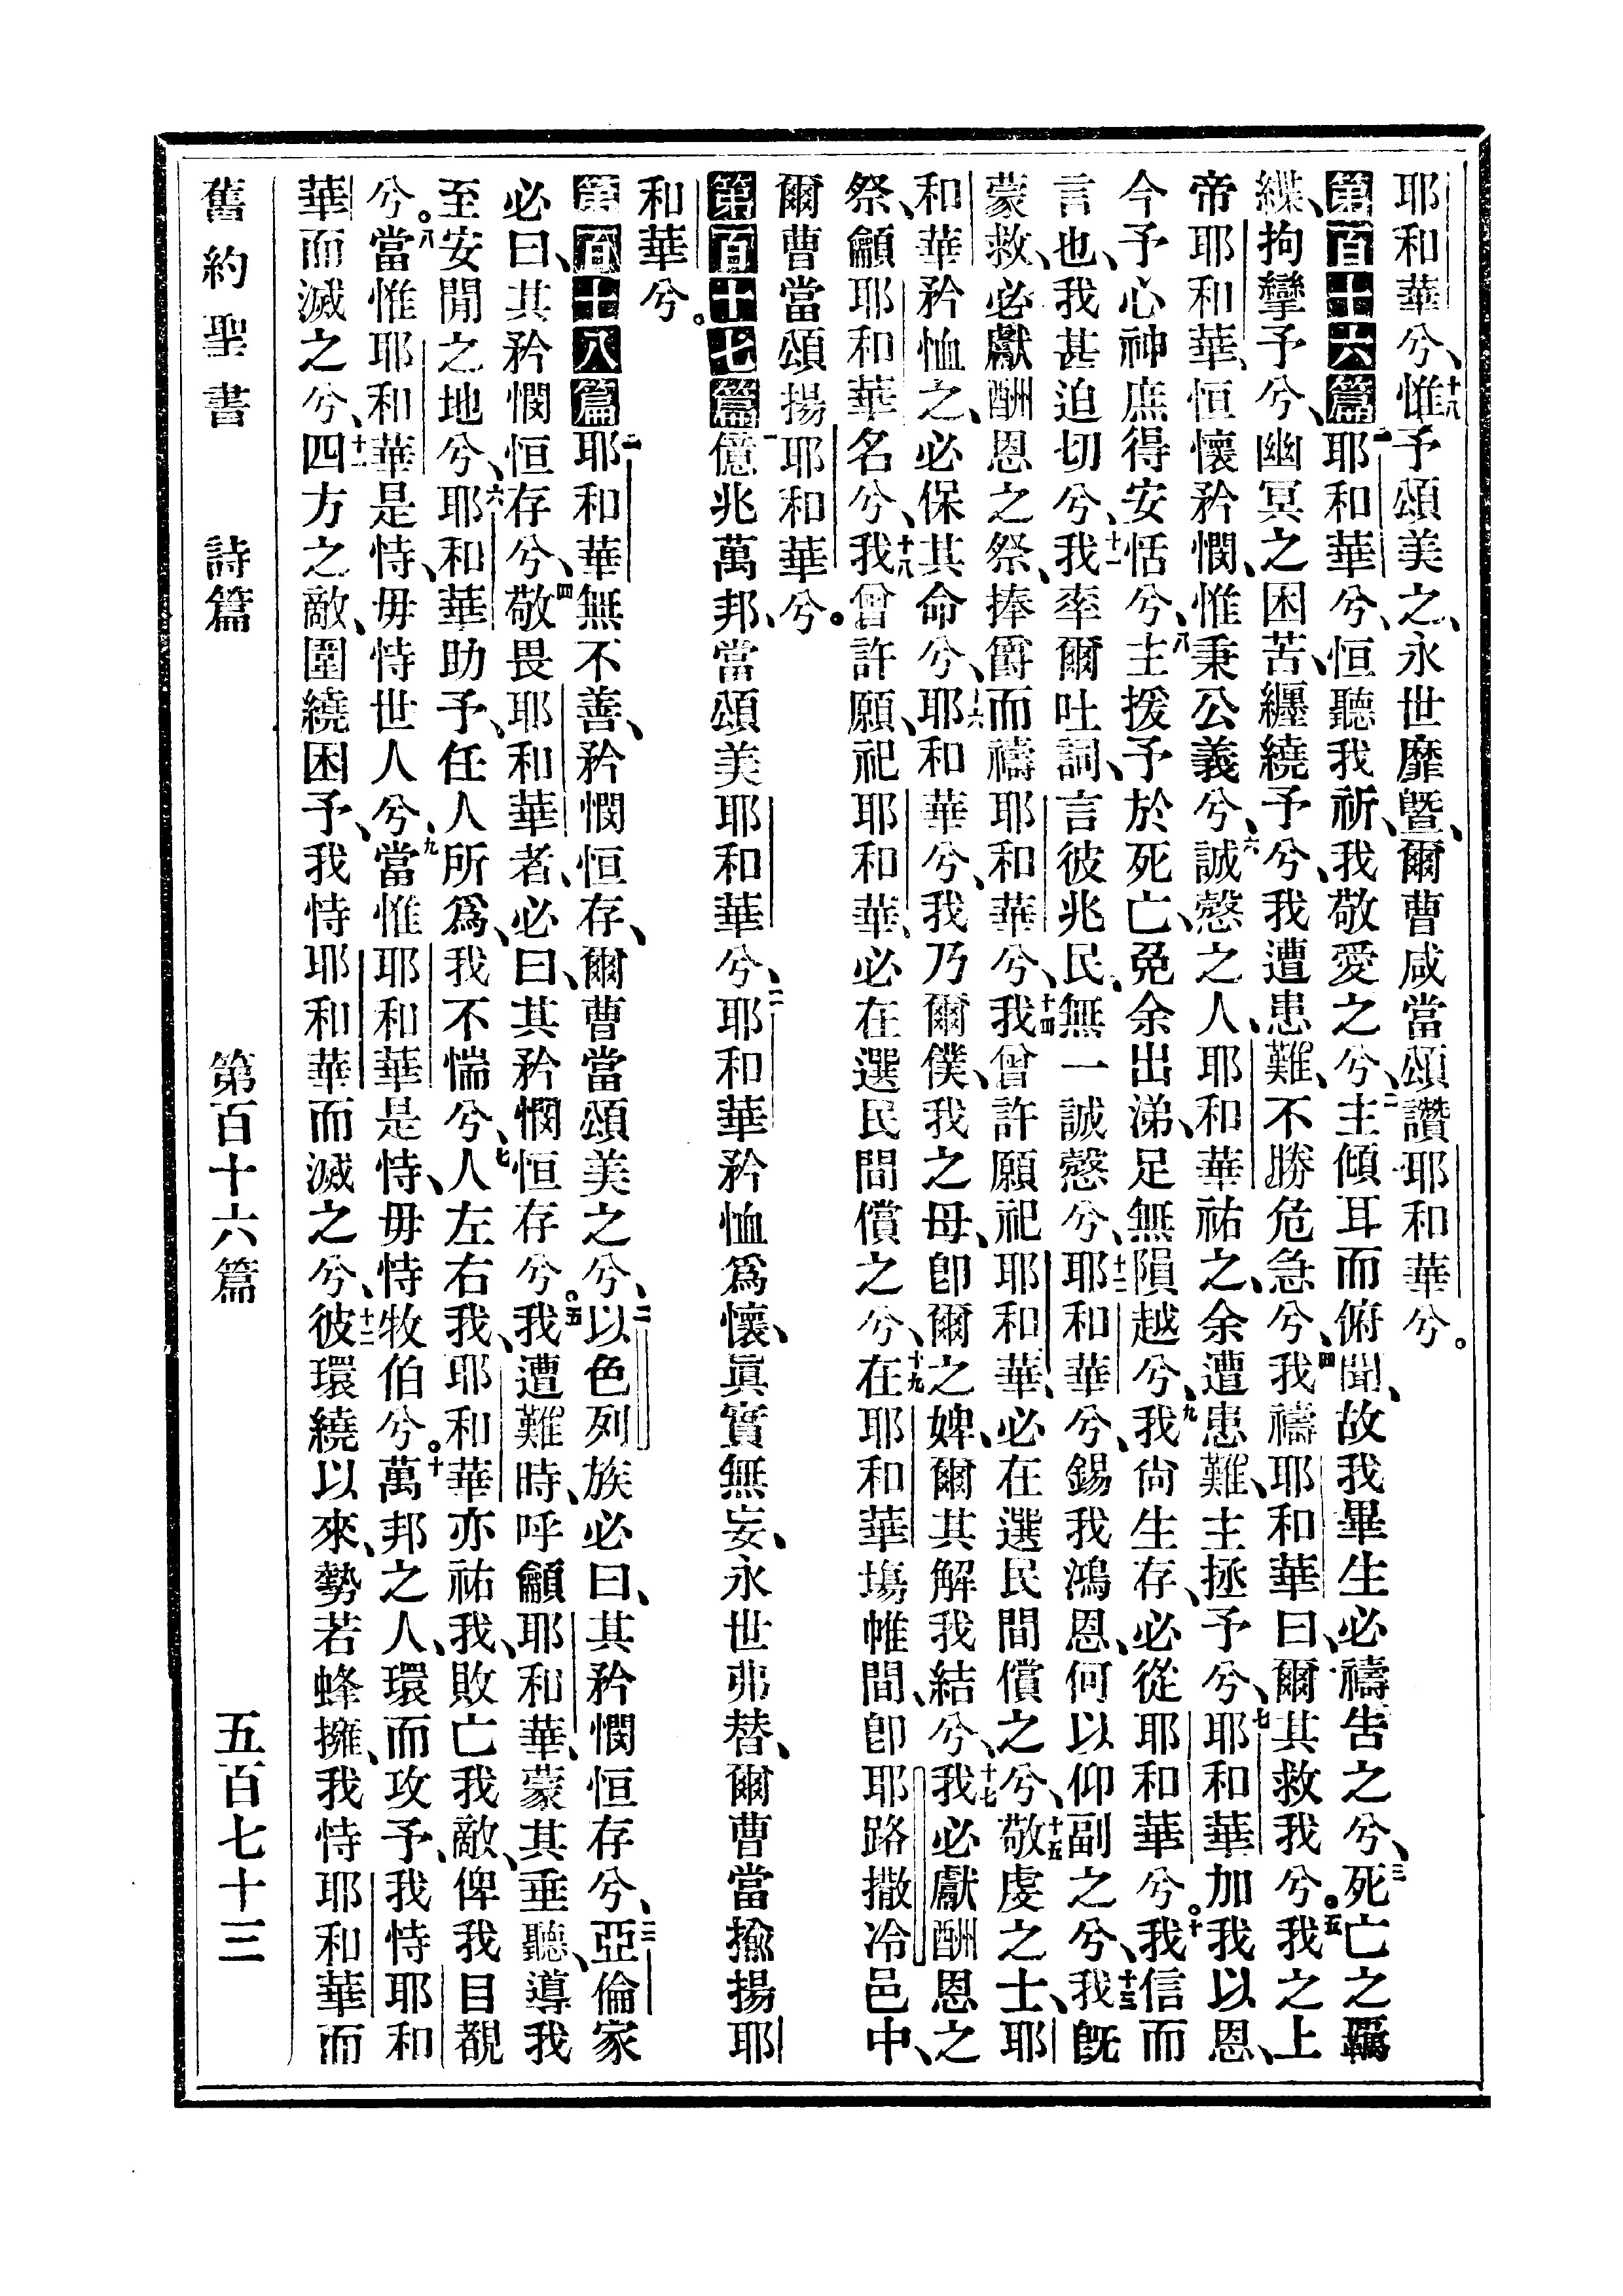 耶和華兮、十八惟予頌美之、永世靡曁、爾曹咸當頌讚耶和華兮。
第百十六篇一耶和華兮、恒聽我祈、我敬愛之兮、二主傾耳而俯聞、故我畢生必禱告之兮、三死亡之羈
緤、拘攣予兮、幽冥之困苦、纏繞予兮、我遭患難、不勝危急兮、四我禱耶和華曰、爾其救我兮。五我之上
帝耶和華、恒懷矜憫、惟秉公義兮、六誠慤之人、耶和華祐之、余遭患難、主拯予兮、七耶和華加我以恩、
今予心神庶得安恬兮、八主援予於死亡、免余出涕、足無隕越兮、九我尙生存、必從耶和華兮。十我信而
言也、我甚迫切兮、十一我率爾吐詞、言彼兆民、無一誠慤兮、十二耶和華兮、錫我鴻恩、何以仰副之兮、十三我旣
蒙救、必獻酬恩之祭、捧爵而禱耶和華兮、十四我曾許願祀耶和華、必在選民間償之兮、十五敬虔之士、耶
和華矜恤之、必保其命兮、十六耶和華兮、我乃爾僕、我之母、卽爾之婢、爾其解我結兮、十七我必獻酬恩之
祭、籲耶和華名兮、十八我曾許願、祀耶和華、必在選民間償之兮、十九在耶和華塲帷間、卽耶路撒冷邑中、
爾曹當頌揚耶和華兮。
第百十七篇一億兆萬邦、當頌美耶和華兮、二耶和華矜恤爲懷、眞實無妄、永世弗替、爾曹當揄揚耶
和華兮。
第百十八篇一耶和華無不善、矜憫恒存、爾曹當頌美之兮、二以色列族必曰、其矜憫恒存兮、三亞倫家
必曰、其矜憫恒存兮、四敬畏耶和華者、必曰、其矜憫恒存兮。五我遭難時、呼籲耶和華、蒙其垂聽、導我
至安閒之地兮、六耶和華助予、任人所爲、我不惴兮、七人左右我、耶和華亦祐我、敗亡我敵、俾我目覩
兮。八當惟耶和華是恃、毋恃世人兮、九當惟耶和華是恃、毋恃牧伯兮。十萬邦之人、環而攻予、我恃耶和
華而滅之兮、十一四方之敵、圍繞困予、我恃耶和華而滅之兮、十二彼環繞以來、勢若蜂擁、我恃耶和華而
舊約聖書 詩篇 第百十六篇 五百七十三